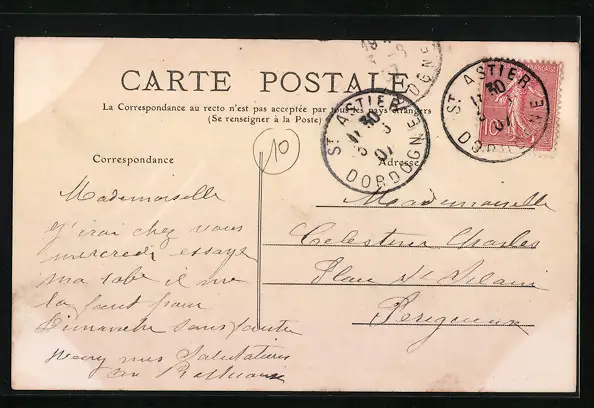 CARTE POSTALE
La Correspondance au recto n'est pas acceptée par tous les pays étrangers
(Se renseigner à la Poste)
ST ASTIER
11 30
5 3
07
DORDOGNE
ST ASTIER
11 30
5 3
07
DORDOGNE
10
Correspondance
Adresse
Mademoiselle
J'irai chez vous
mercredi essaye
ma robe il me
la faut pour
Dimanche sans faute
mes Salutations
Mademoiselle
Celestine Charles
Place St Silain
Perigueux